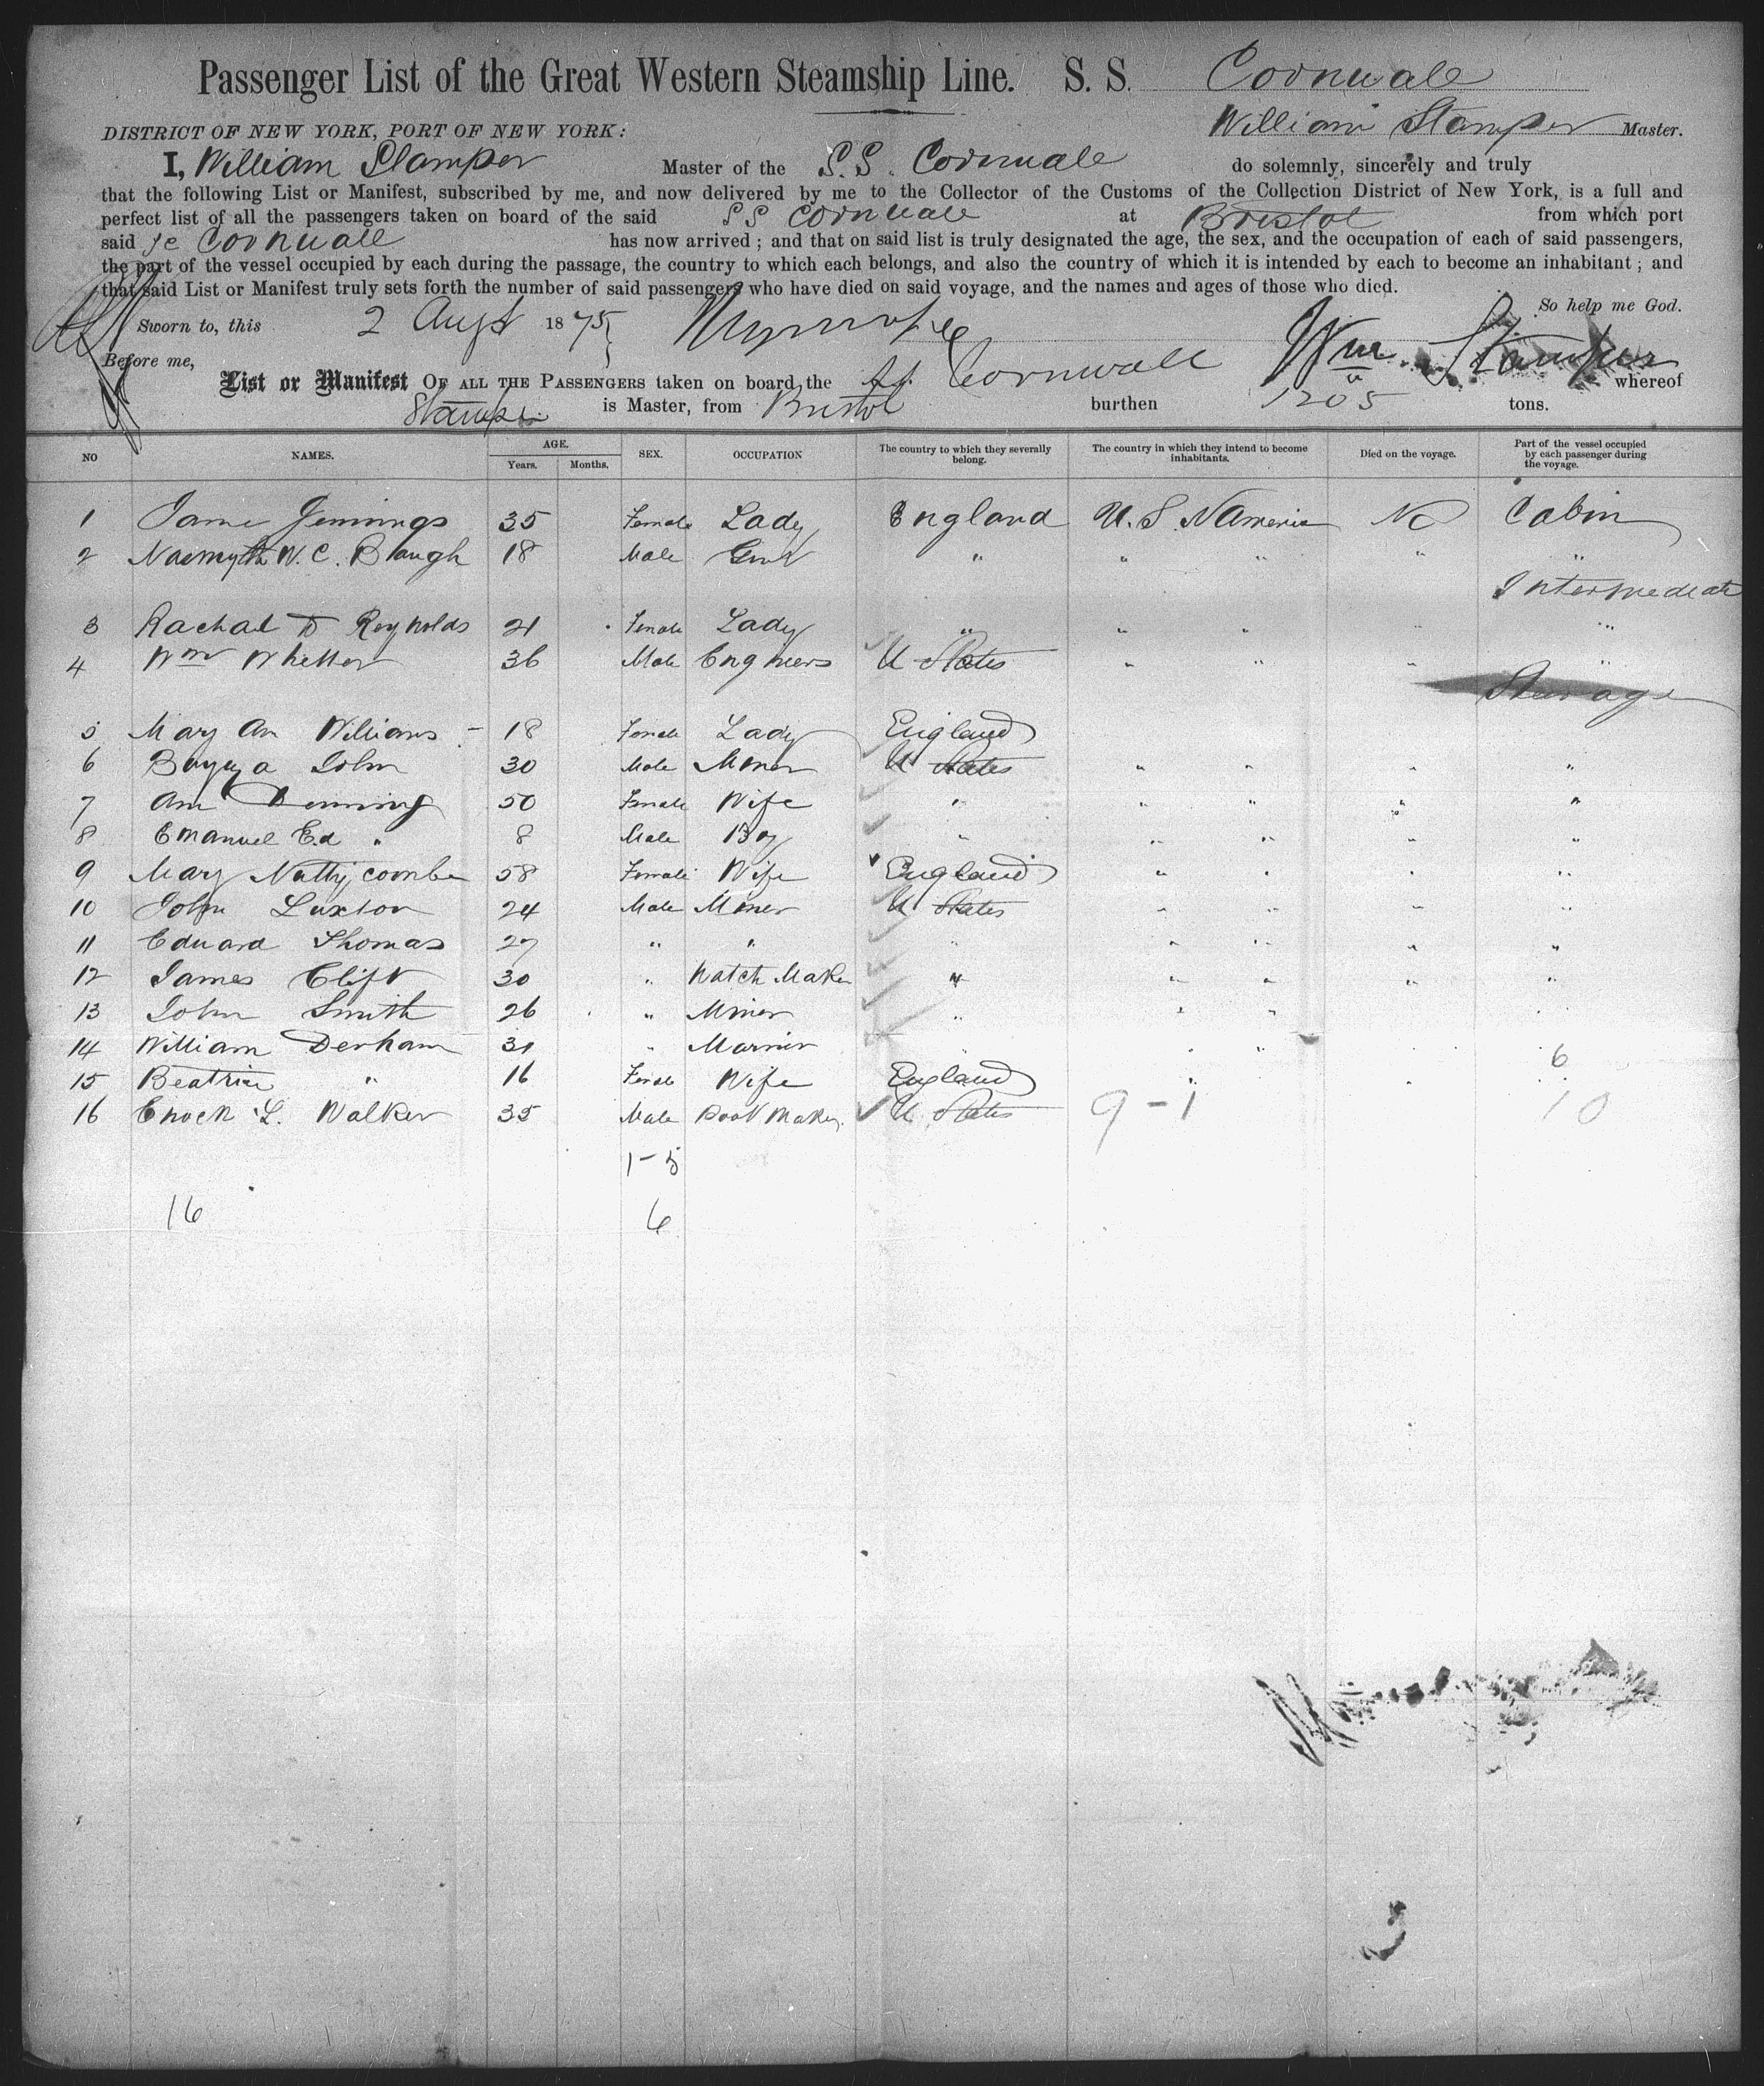 Passenger List of the Great Western Steamship Line. S. S. Cornwall
DISTRICT OF NEW YORK, PORT OF NEW YORK: William Stamper Master.
I, William Stamper Master of the S.S. Cornwall do solemnly, sincerely and truly
that the following List or Manifest, subscribed by me, and now delivered by me to the Collector of the Customs of the Collection District of New York, is a full and
perfect list of all the passengers taken on board of the said SS Cornwall at Bristol from which port
said Cornwall has now arrived ; and that on said list is truly designated the age, the sex, and the occupation of each of said passengers,
the part of the vessel occupied by each during the passage, the country to which each belongs, and also the country of which it is intended by each to become an inhabitant ; and
that said List or Manifest truly sets forth the number of said passengers who have died on said voyage, and the names and ages of those who died.
So help me God.
Sworn to, this 2 Augt 1875
Before me, Wm. Stamper
List or Manifest OF ALL THE PASSENGERS taken on board the SS Cornwall whereof
Stamper is Master, from Bristol burthen 1205 tons.
NO NAMES. AGE. Years. Months. SEX. OCCUPATION The country to which they severally belong. The country in which they intend to become inhabitants. Died on the voyage. Part of the vessel occupied by each passenger during the voyage.
1 Jennings 35 Female Lady England U. S. NAmerica No Cabin
2 Naesmyth W. C. Baugh 18 Male Gent " " " " "
Intermediate
3 Rachael Reynolds 21 Female Lady " " " " "
4 Wm Whetter 36 Male Engineers U States " " " "
Steerage
5 Mary An Williams 18 Female Lady England
6 John 30 Male Miner U States " " " "
7 Ann Denning 50 Female Wife " " " " "
8 Emanuel Ed " 8 Male Boy " " " " "
9 Mary Nattycombe 58 Female Wife England " " " "
10 John Luxton 24 Male Miner U States " " " "
11 Edward Thomas 27 " " " " " " "
12 James Clift 30 " Watch Maker " " " " "
13 John Smith 26 " Miner " " " " "
14 William Derham 31 " Marner " " "
15 Beatrice " 16 Female Wife England " " 6
16 Enoch L. Walker 35 Male Boot Maker U States 9-1 10
1-5
16 6